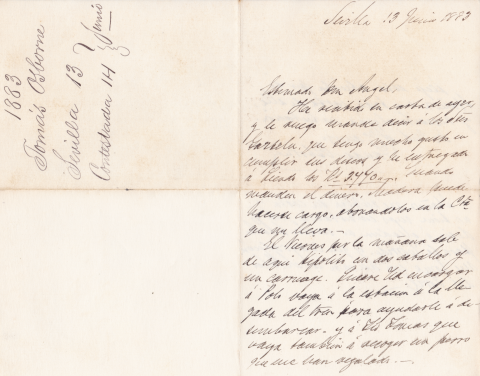 1883
Tomás Osborne
Sevilla 13
Contestada 14 Junio
Sevilla 13 Junio 1883
Estimado Don Angel.
He recibido su carta de ayer,
y le ruego mande decir á los
que tengo mucho gusto en
cumplir sus deseos y he entregado
á los
manden el dinero, puede
hacerse cargo, abonandolos en la
que me lleva.—
El Viernes por la mañana sale
de aqui Hipolito con dos caballos y
un carruage. Ud encargar
á vaya á la estacion á la lle-
gada del tren para ayudarle á de-
sembarcar, y á Tomas que
vaya tambien á recoger un perro
que me han regalado.—